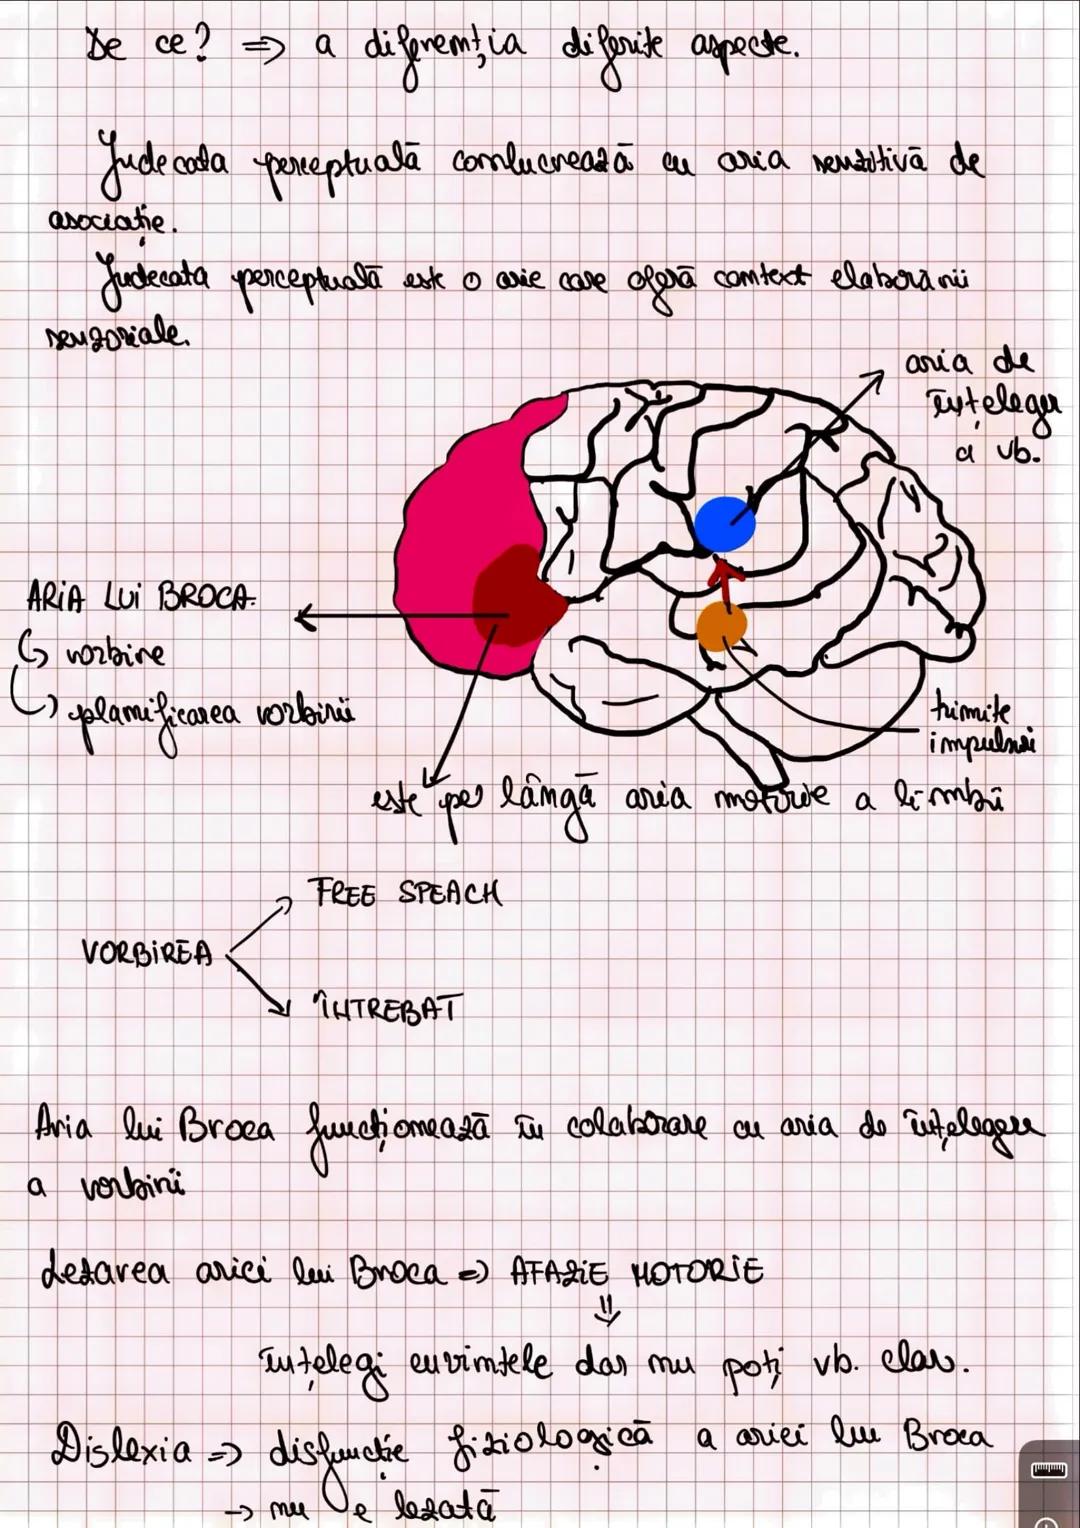 De ce? => a diferenția diferite aspecte.
Judecata perceptuală conlucrează cu aria senzitivă de
asociație.
Judecata perceptuală este o arie care oferă context elaborării
senzoriale.
aria de
înțeleger
a vb.
ARIA LUI BROCA
vorbire
planificarea vorbirii
trimite
impulsuri
este pe lângă aria motorie a limbii
FREE SPEACH
VORBIREA
ÎNTREBAT
Aria lui Broca funcționează în colaborare cu aria de înțelegere
a vorbirii
Lezarea ariei lui Broca => AFAZIE MOTORIE
înțelegi cuvintele dar nu poți vb. clar.
Dislexia => disfuncție fiziologică a ariei lui Broca
-> nu e lezată